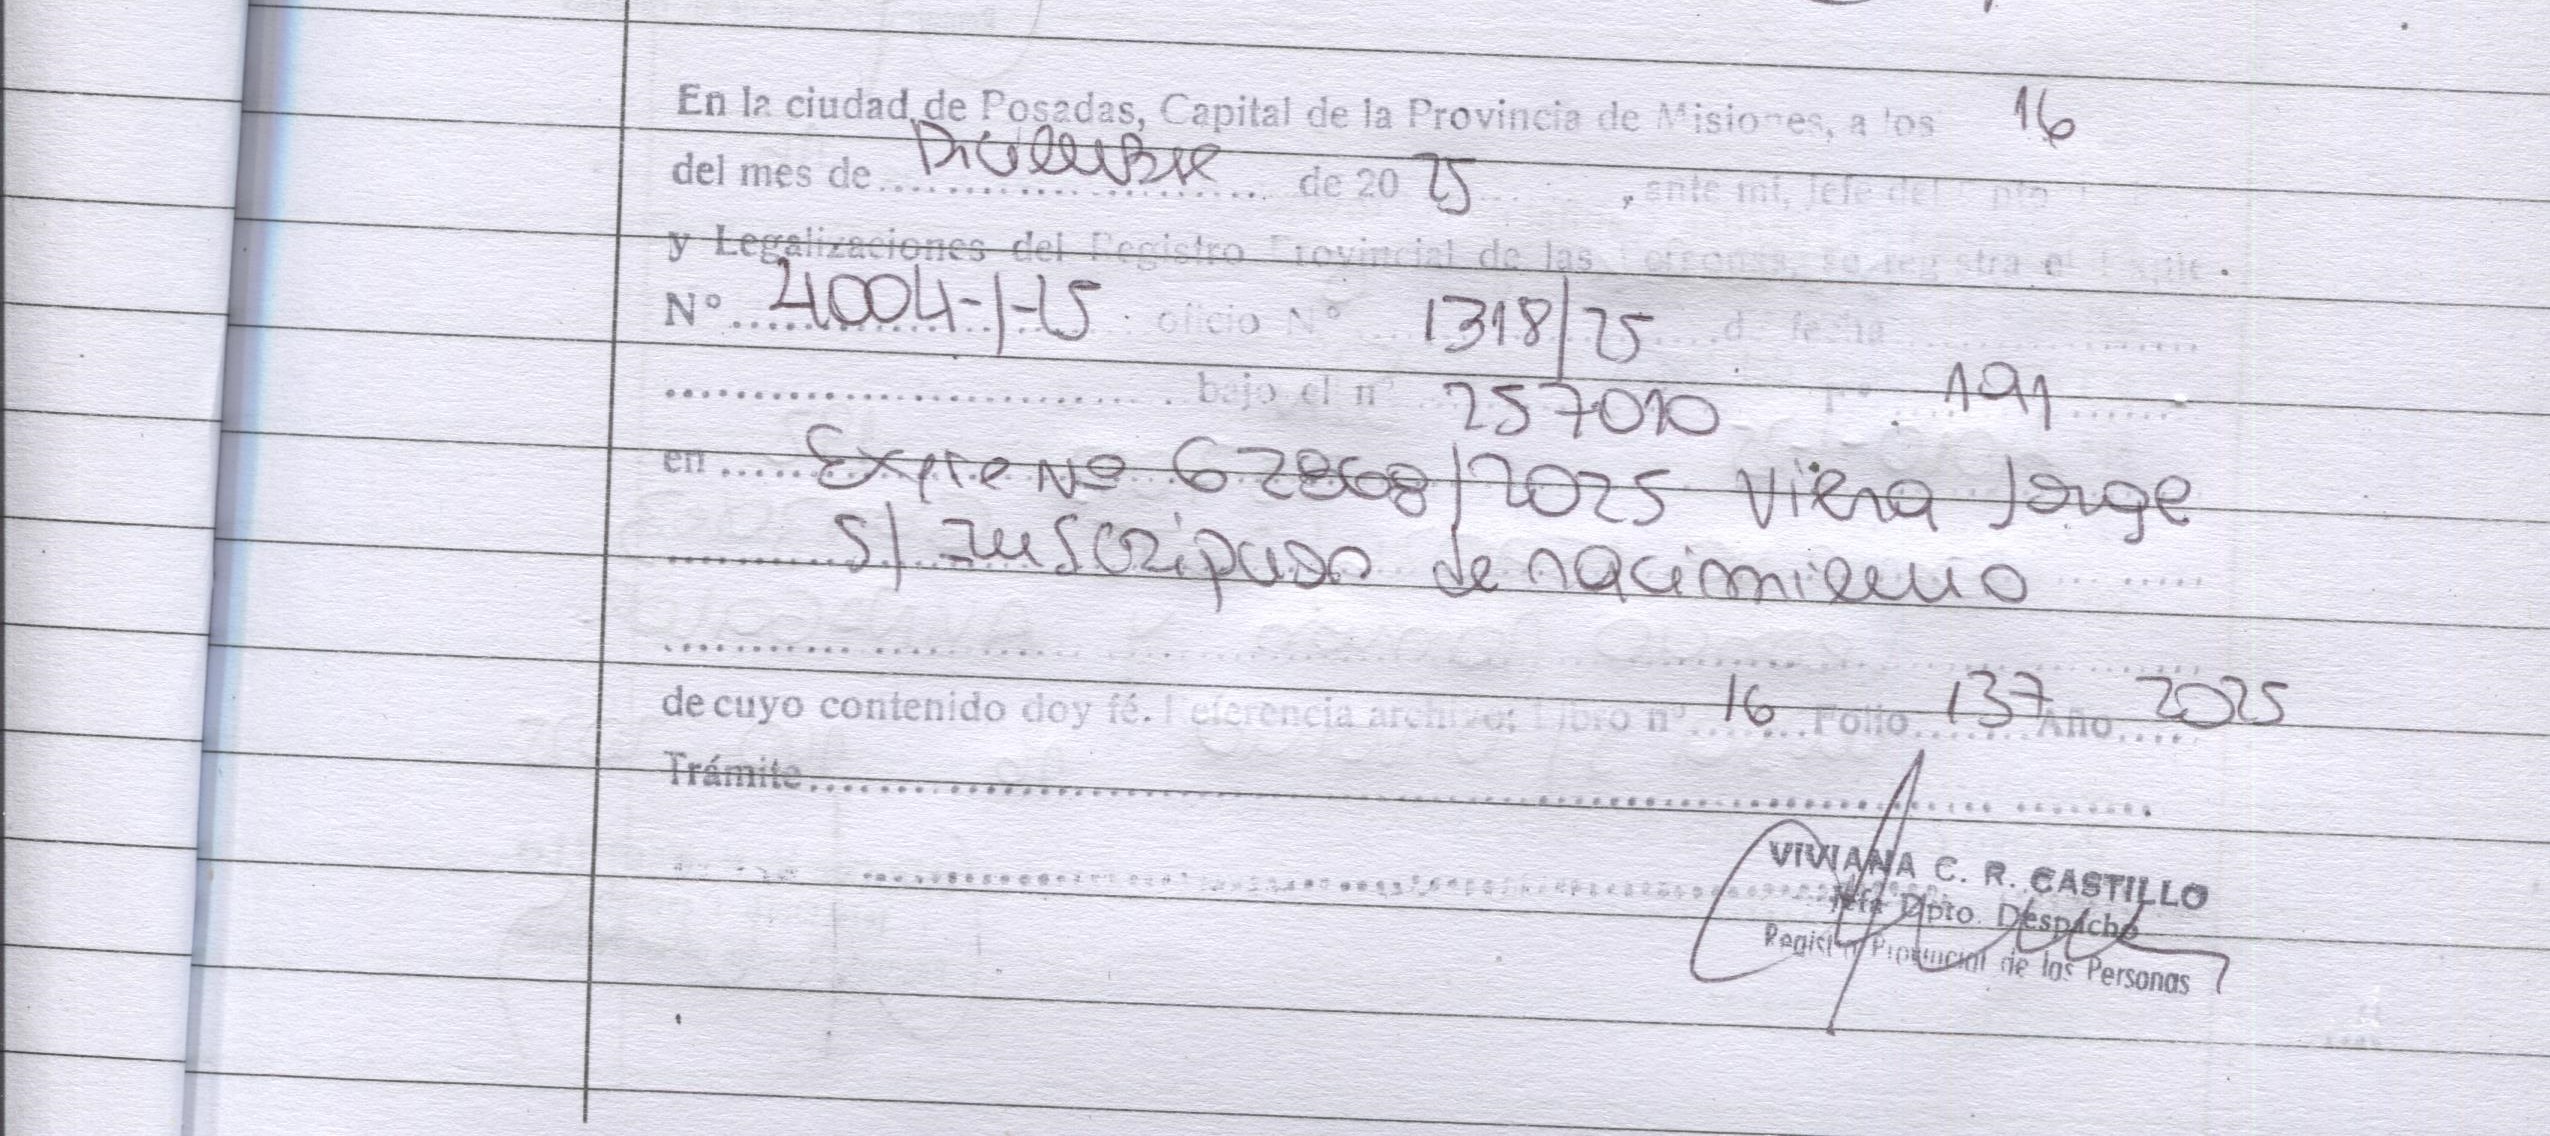 En la ciudad de Posadas, Capital de la Provincia de Misiones, a los 16
del mes de Diciembre de 2025, ante mi, Jefe del Dpto
y Legalizaciones del Registro Provincial de las Personas, se registra el Expte.
Nº 4004-I-25 oficio Nº 1318/25 de fecha
bajo el nº 257010 Fº 191
en Expte Nº 62868/2025 Viera Jorge
S/ Inscripcion de nacimiento
de cuyo contenido doy fé. Referencia archivo: Libro nº 16 Folio 137 Año 2025
Trámite
VIVIANA C. R. CASTILLO
Jefa Dpto. Despacho
Registro Provincial de las Personas